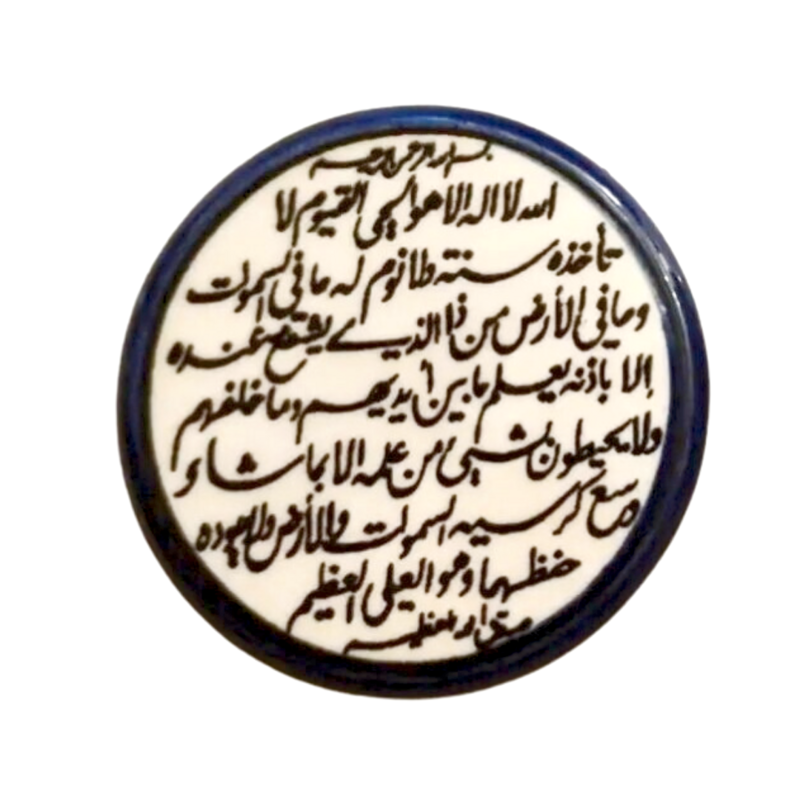 بسم الله الرحمن الرحيم
الله لا اله الا هو الحي القيوم لا
تأخذه سنة ولا نوم له ما في السموت
وما في الأرض من ذا الذي يشفع عنده
إلا باذنه يعلم ما بين أيديهم وما خلفهم
ولا يحيطون بشيئ من علمه الا بما شاء
وسع كرسيه السموت والأرض ولا يوده
حفظهما وهو العلي العظيم
صدق الله العظيم